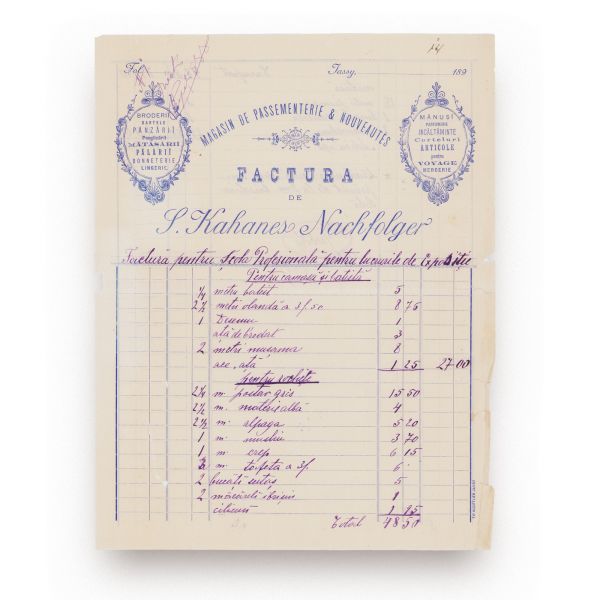 14
Fol.
Jassy, 189
BRODERII
DANTELE
PÂNZĂRII
Panglicării
MĂTĂSĂRII
PĂLĂRII
BONNETERIE
LINGERIE
MAGASIN DE PASSEMENTERIE & NOUVEAUTÉS
MĂNUȘI
PARFUMERIE
INCĂLȚĂMINTE
ARTICOLE
pentru
VOYAGE
MERCERIE
FACTURA
DE
S. Kahanes Nachfolger
Factură pentru Școla Profesională pentru lucrurile de Expoziție
Pentru camașă și batistă
metru batist 5
2½ metri olandă a 3f. 50 8 75
1 Desenu 1
ață de brodat 3
2 metri 8
ace, ață 1 25 27 00
pentru rochie
m. postav gris 15 50
2½ m. materie albă 4
2½ m. alpaga 5 20
1 m. muslin 3 70
1 m. crep 6 15
m. tafeta a 3f. 6
2 bucăți sutaș 5
2 1
1 95
Total 48 50